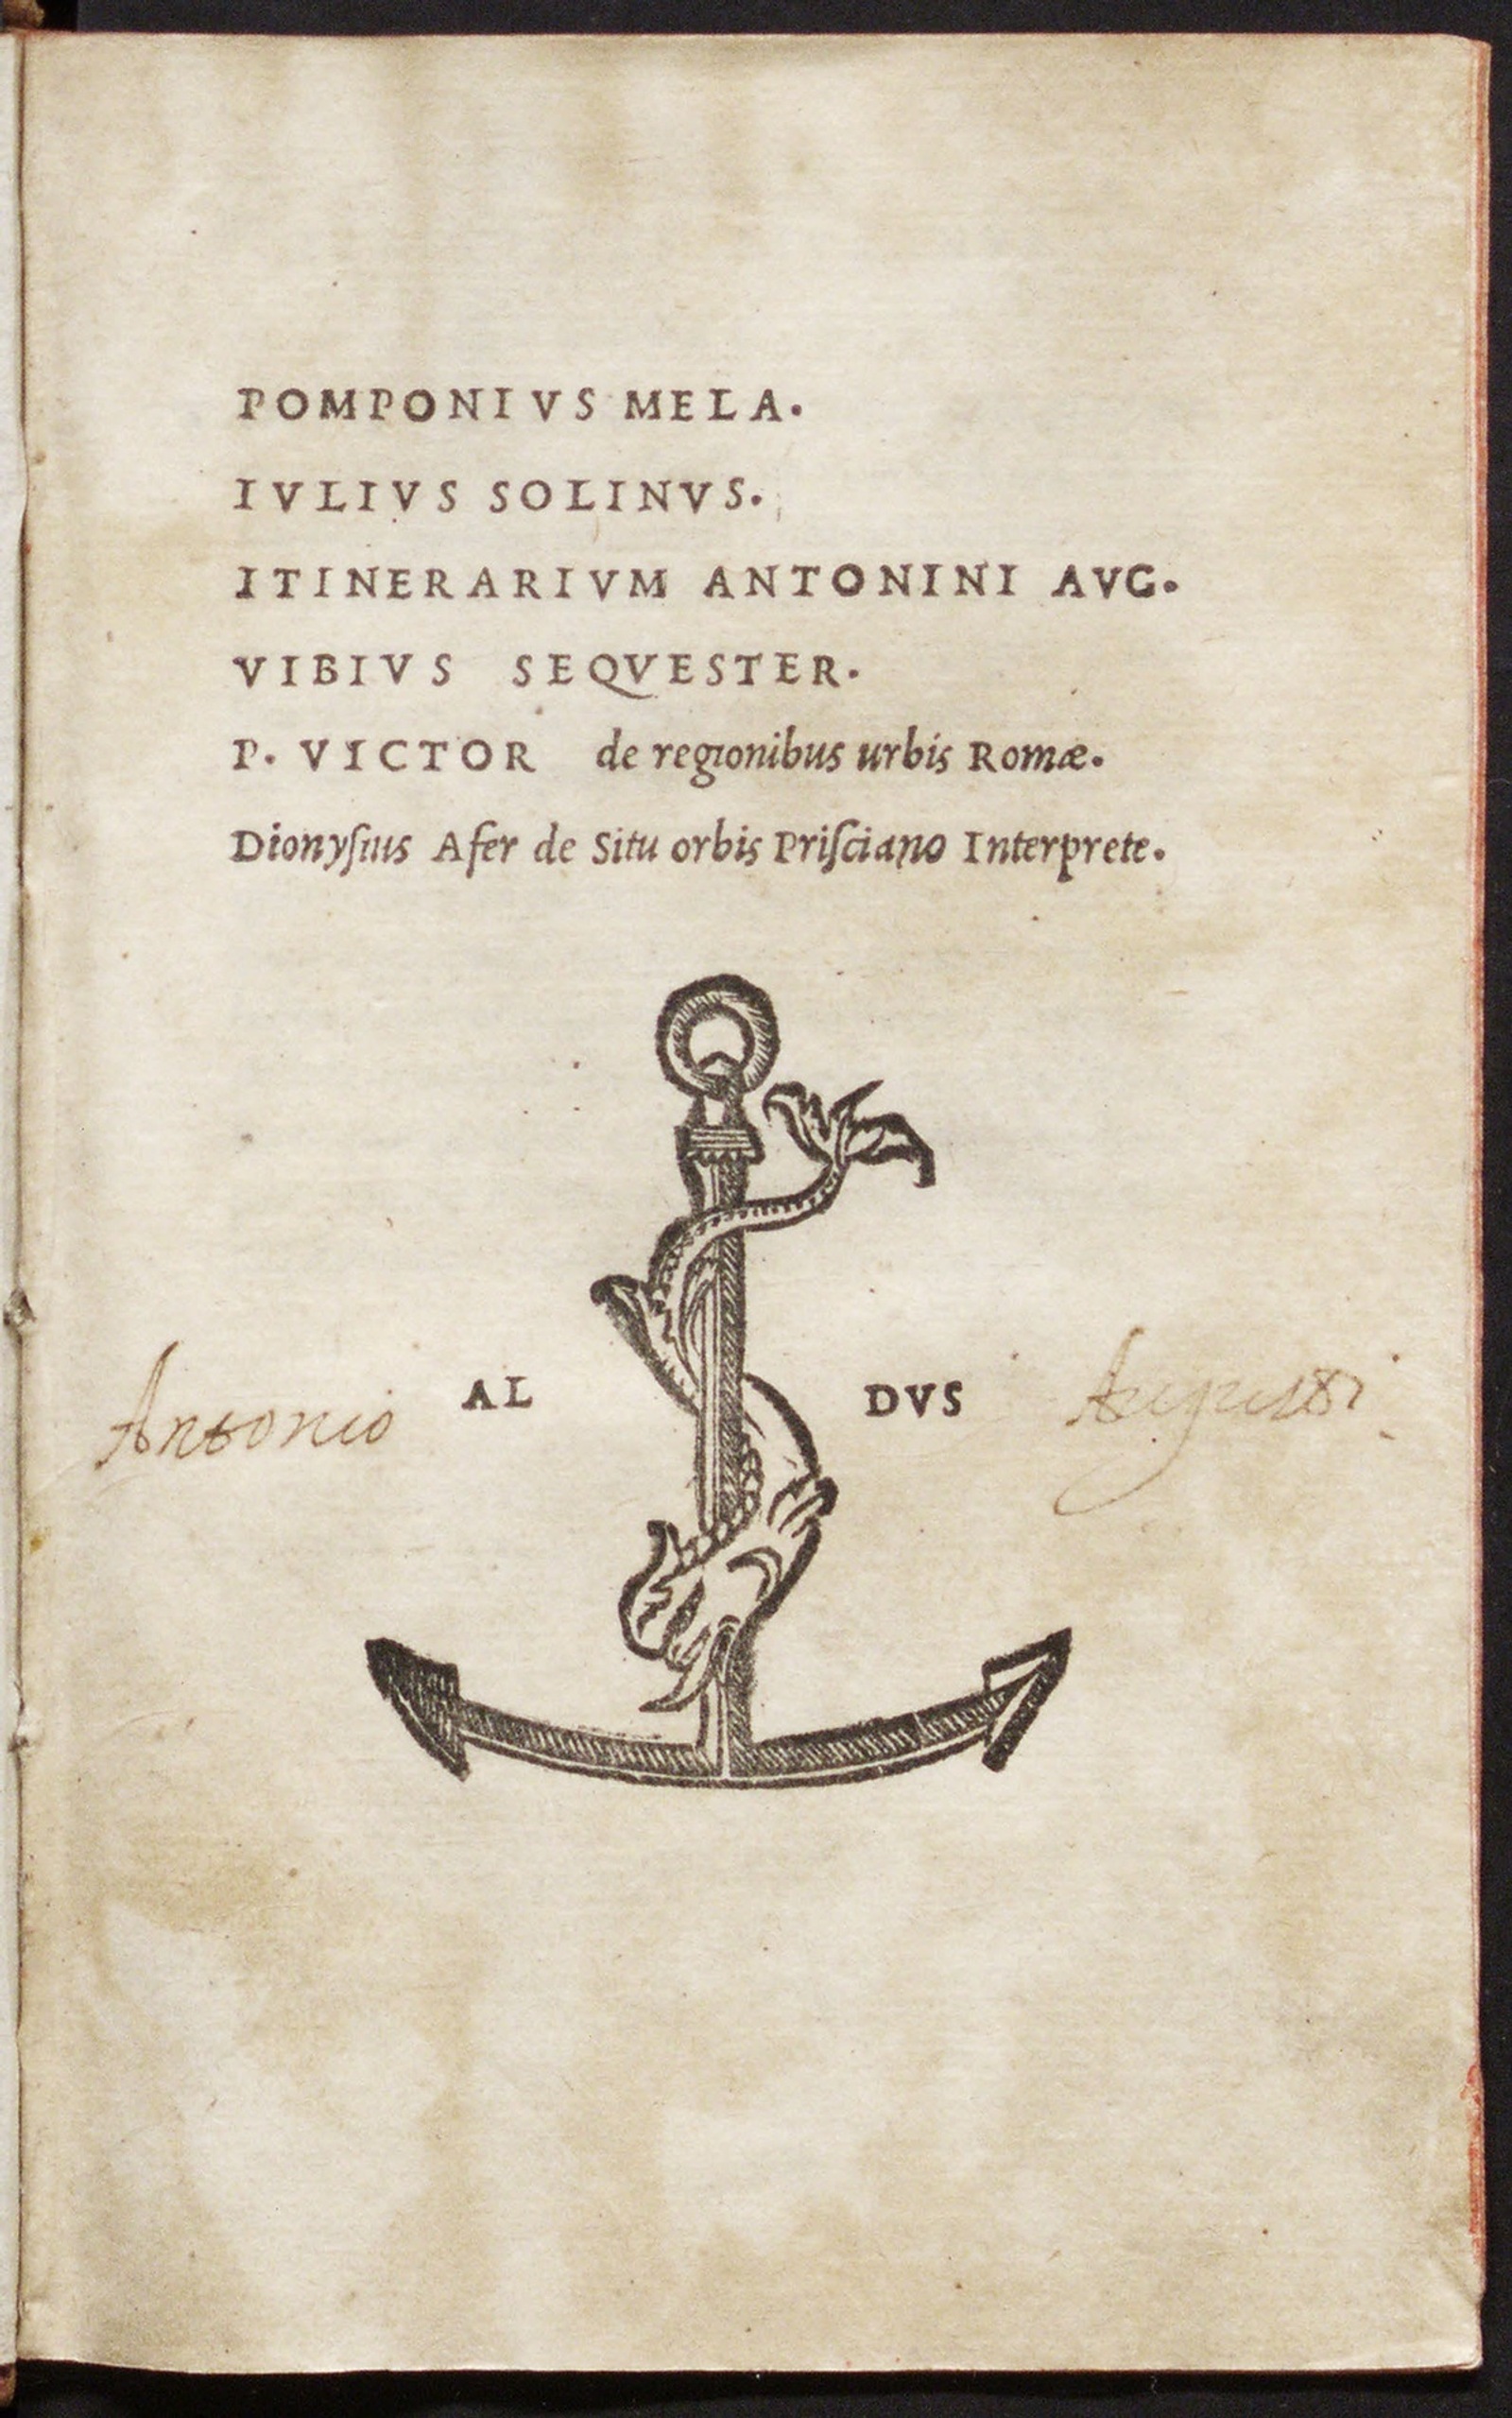 POMPONIVS MELA.
IVLIVS SOLINVS.
ITINERARIVM ANTONINI AVG.
VIBIVS SEQVESTER.
P. VICTOR de regionibus urbis Romæ.
Dionyſius Afer de Situ orbis Priſciano Interprete.
Antonio AL DVS